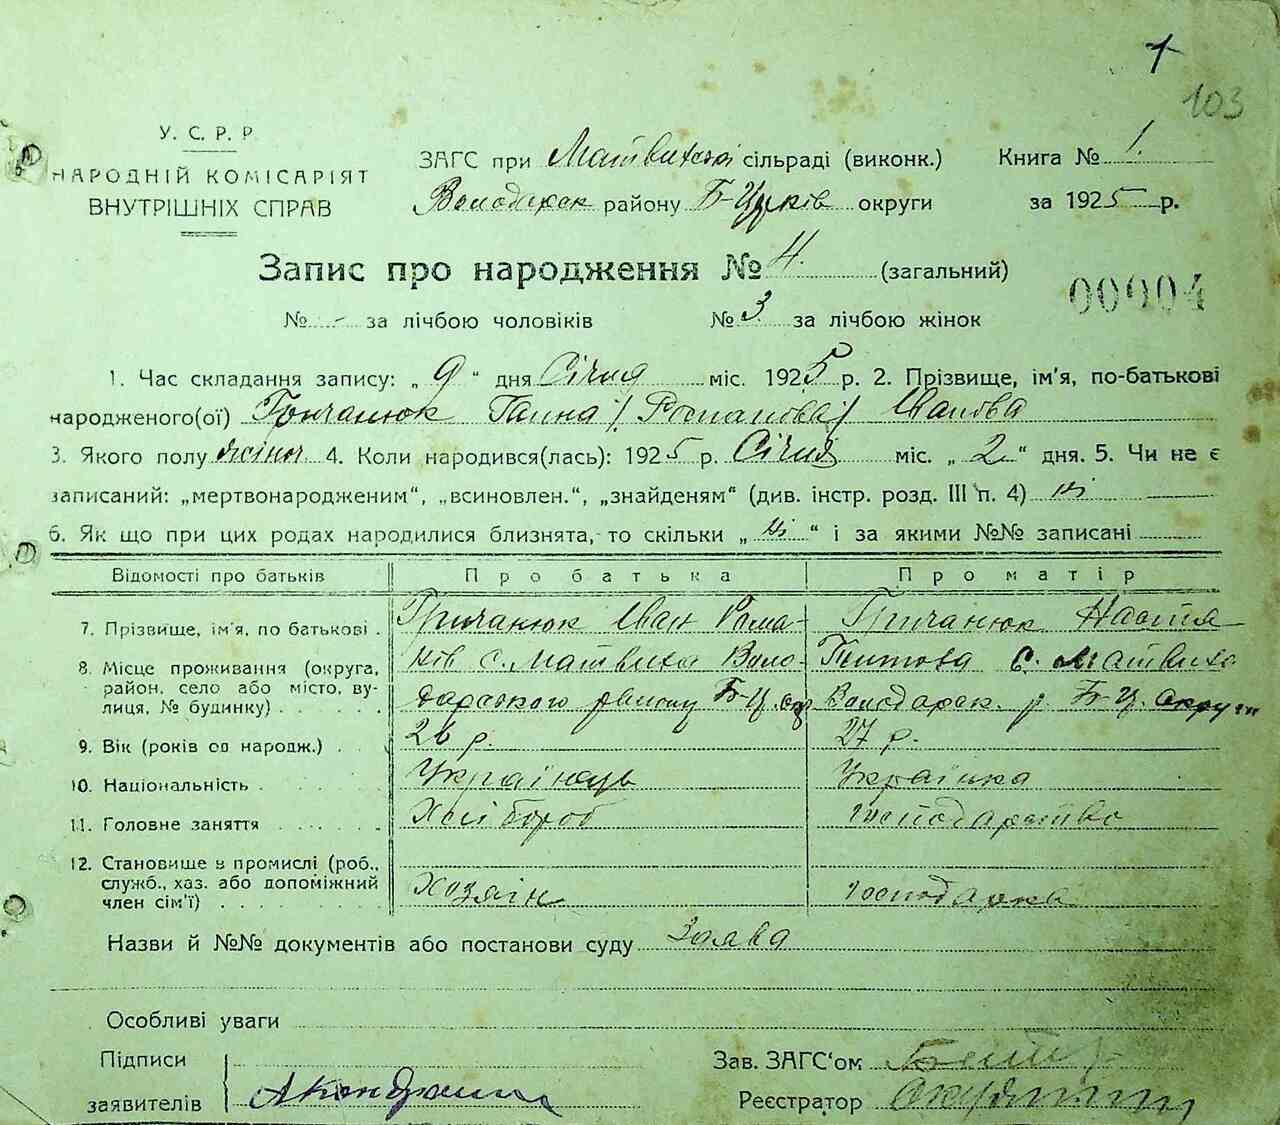 1
103
У. С. Р. Р.
НАРОДНІЙ КОМІСАРІЯТ
ВНУТРІШНІХ СПРАВ
ЗАГС при Матвихській сільраді (виконк.) Книга № 1.
Володарск району Б-Церків округи за 1925 р.
Запис про народження № 4. (загальний)
00004
№ - за лічбою чоловіків № 3 за лічбою жінок
1. Час складання запису: „ 9 " дня Січня міс. 1925 р. 2. Прізвище, ім'я, по-батькові
народженого(ої) Гричанюк Ганна /Романова/ Іванова
3. Якого полу жіноч 4. Коли народився(лась): 1925 р. Січня міс. „ 2 " дня. 5. Чи не є
записаний: „мертвонародженим", „всиновлен.", „знайденям" (див. інстр. розд. III п. 4) ні
6. Як що при цих родах народилися близнята, то скільки „ ні " і за якими №№ записані
Відомості про батьків Про батька Про матір
7. Прізвище, ім'я, по батькові . Гричанюк Іван Рома- Гричанюк Настя
8. Місце проживання (округа, нів с. Матвиха Воло- Титова с. Матвиха
район, село або місто, ву- дарського району Б-Ц. окр Володарск. р. Б-Ц. округи
лиця, № будинку)
9. Вік (років од народж.) 26 р. 27 р.
10. Національність Українець Українка
11. Головне заняття Хлібороб господарство
12. Становище в промислі (роб.,
служб., хаз. або допоміжний Хозяїн господарка
член сім'ї)
Назви й №№ документів або постанови суду Заява
Особливі уваги
Підписи Зав. ЗАГС'ом
заявителів Реєстратор